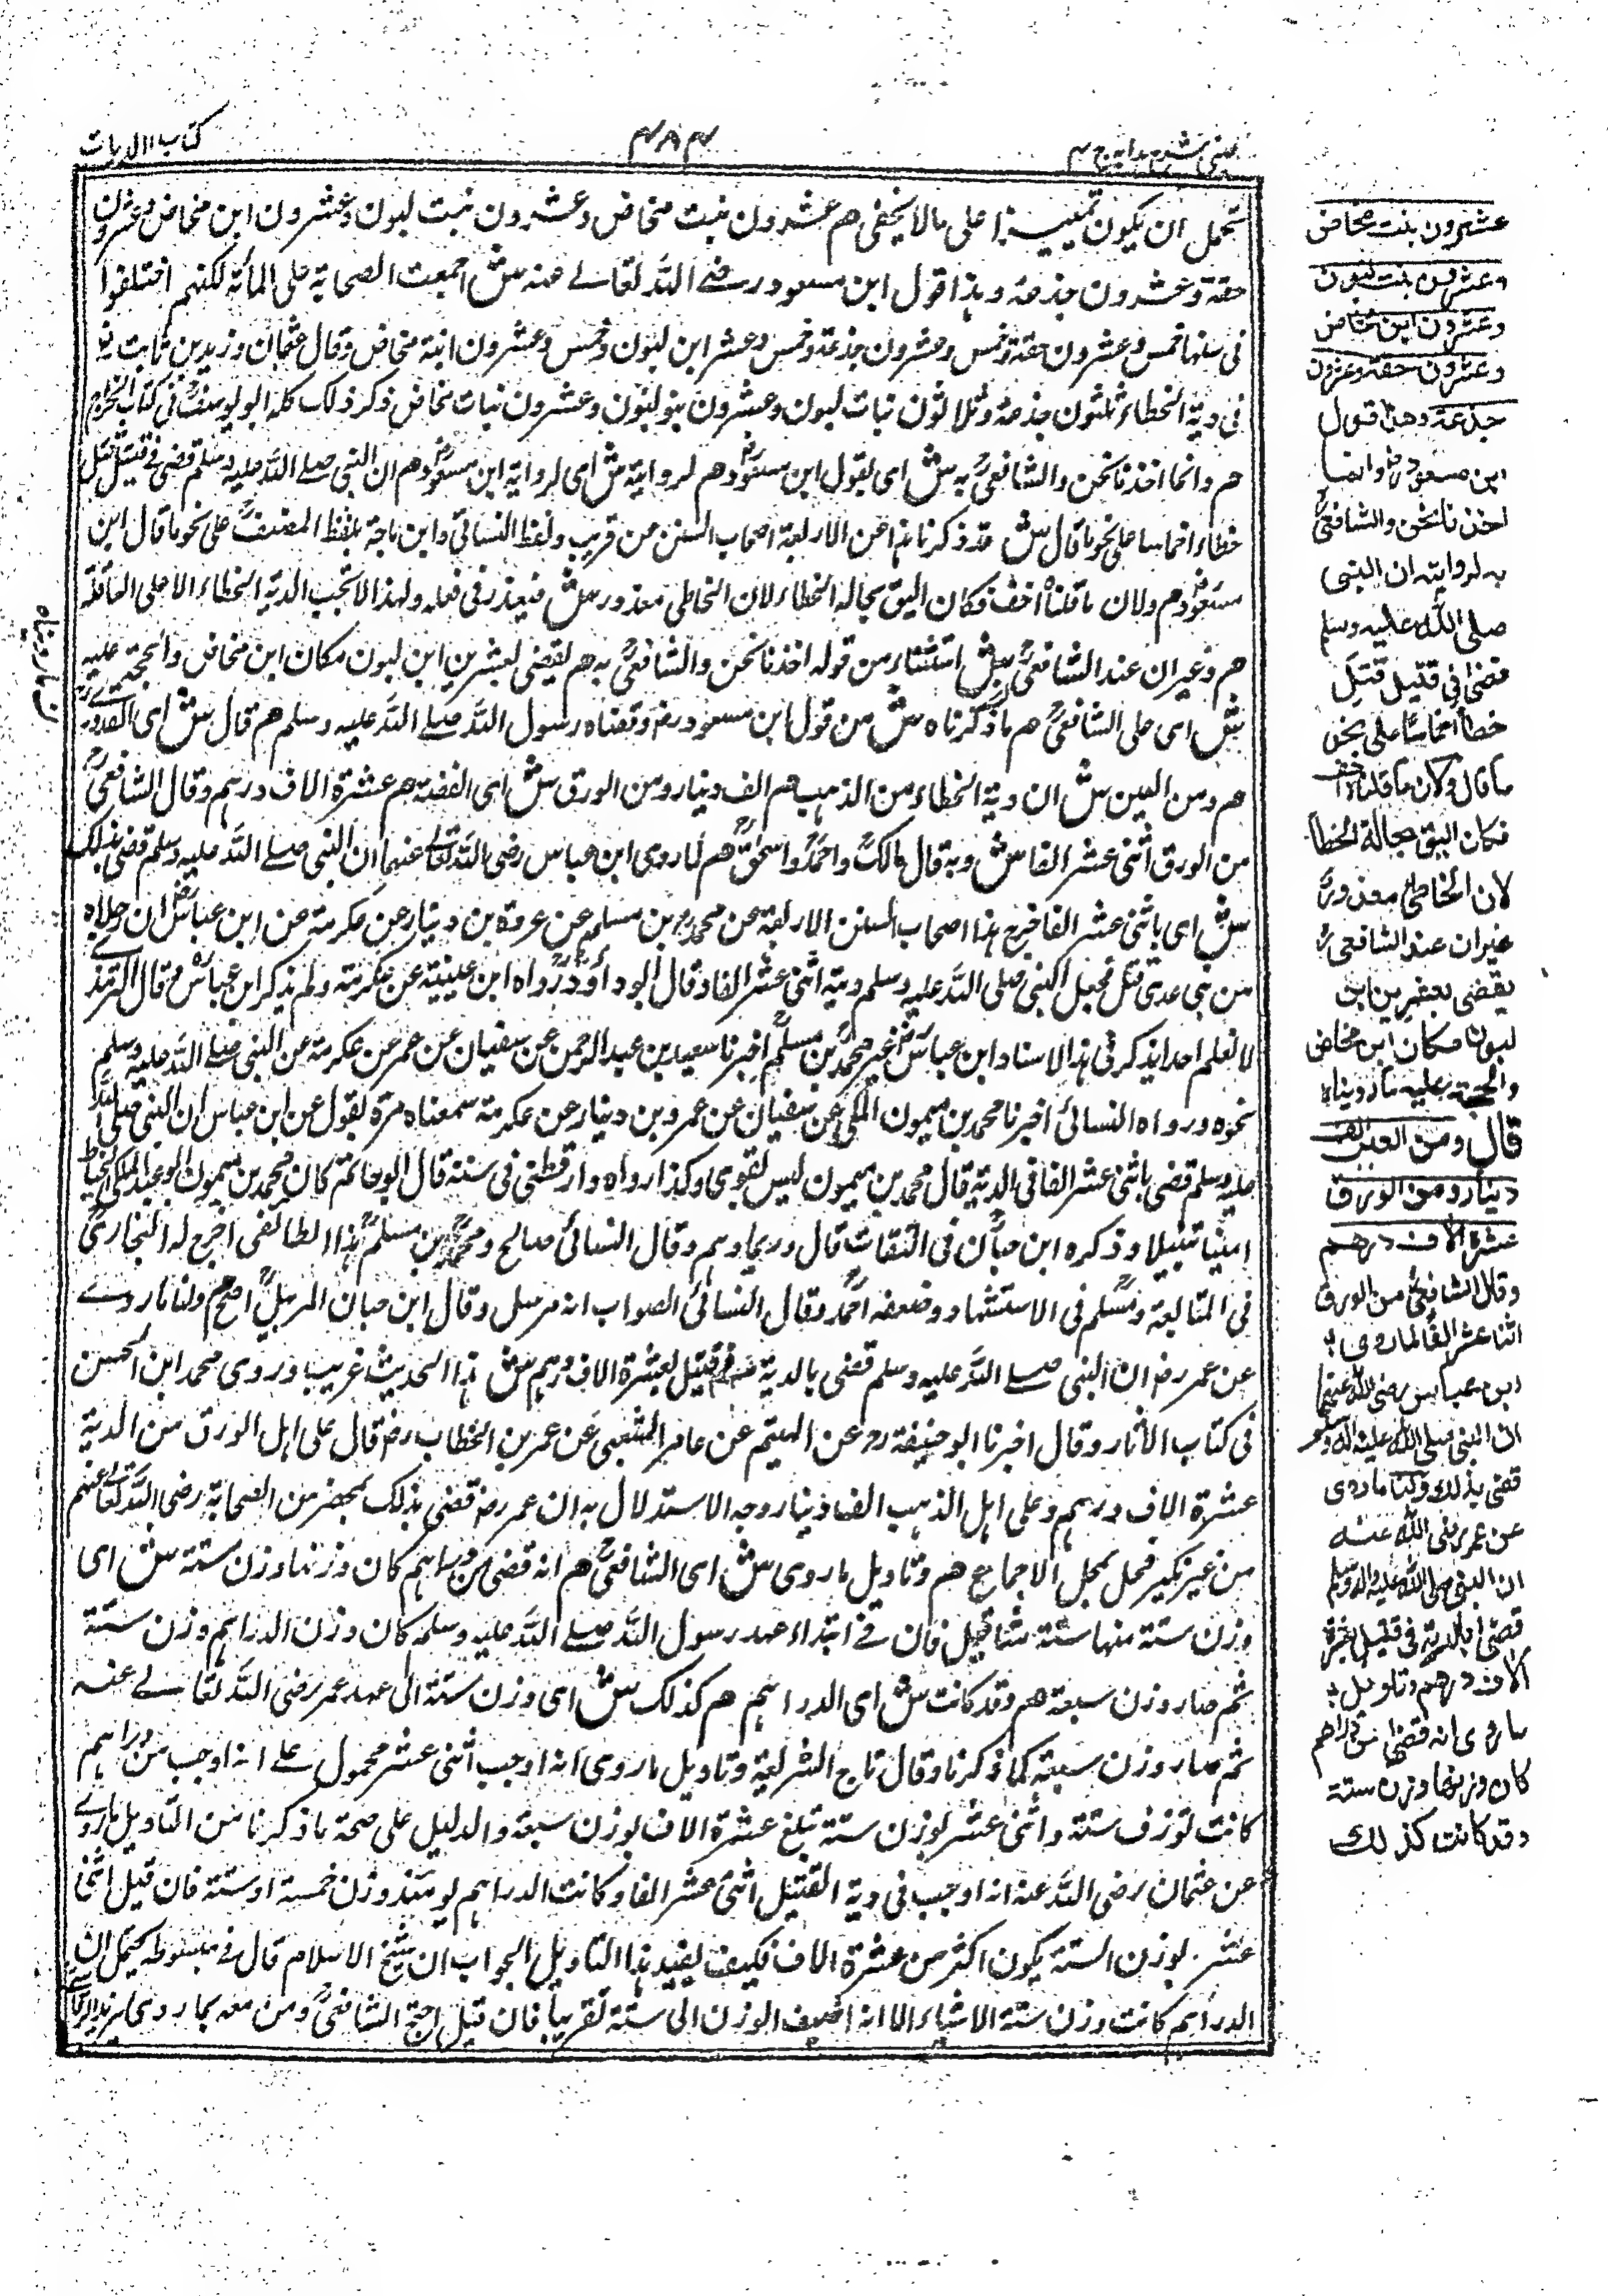 عینی شرح ہدایہ ج ۴
۴۸۴
کتاب الدیات
یحتمل ان یکون تمییزا علی مالا یخفی هم عشرون بنت مخاض وعشرون بنت لبون وعشرون ابن مخاض وعشرون
حقة وعشرون جذعة وہذا قول ابن مسعود رضے اللہ تعالے عنہ ش اجمعت الصحابة علی المائة لکنهم اختلفوا
فی سنها خمس وعشرون حقة وخمس وعشرون جذعة وخمس وعشر ابن لبون وخمس وعشرون ابنة مخاض وقال عثمان وزید بن ثابت
فی دیة الخطاء ثلثون جذعة وثلاثون بنات لبون وعشرون بنو لبون وعشرون بنات مخاض ذکر ذلک کله ابو یوسف فی کتاب الخراج
هم وانما اخذنا نحن والشافعی به ش ای بقول ابن مسعود هم لروایته ش ای لروایة ابن مسعود هم ان النبی صلے اللہ علیہ وسلم قضی فے قتیل قتل
خطاء اخماسا علی نحو ما قال ش قد ذکرنا هذا عن الاربعة اصحاب السنن عن قریب ولفظ النسائی وابن ماجة بلفظ المصنف علی نحو ما قال ابن
مسعود هم ولان ما قلناه اخف فکان الیق بحالة الخطاء لان الخاطی معذور ش فیعذر فی فعله ولهذا لا تجب الدیة الخطاء الا علی العاقلة
هم وغیر ان عند الشافعی ش استثناء من قوله اخذنا نحن والشافعی به هم یقضی بعشرین ابن لبون مکان ابن مخاض والحجة علیه
ش ای علی الشافعی هم ما ذکرناه ش من قول ابن مسعود رض وقضاه رسول اللہ صلے اللہ علیہ وسلم هم قال ش ای القدوری
هم ومن العین ش ان دیة الخطاء من الذہب هم الف دینار ومن الورق ش ای الفضة هم عشرة الاف درہم وقال الشافعی
من الورق اثنی عشر الفا ش وبه قال مالک واحمد واسحق هم لما روی ابن عباس رضی اللہ تعالے عنہما ان النبی صلے اللہ علیہ وسلم قضی بذلک
ش ای باثنی عشر الفا خرج هذا اصحاب السنن الاربعة عن محمد بن مسلم عن عروة بن دینار عن عکرمة عن ابن عباس ان رجلاہ
من بنی عدی قتل فجعل النبی صلی اللہ علیہ وسلم دیة اثنی عشر الفا وقال ابو داؤد رواه ابن عیینة عن عکرمة ولم یذکر ابن عباس وقال الترمذے
لا نعلم احدا یذکر فی هذا الاسناد ابن عباس غیر محمد بن مسلم اخبرنا سعید بن عبد الرحمن عن سفیان عن عمر عن عکرمة عن النبی صلے اللہ علیہ وسلم
نحوہ ورواه النسائی اخبرنا محمد بن میمون المکی عن سفیان عن عمرو بن دینار عن عکرمة سمعناه مرة یقول عن ابن عباس ان النبی صلی اللہ
علیہ وسلم قضی باثنی عشر الفا فی الدیة قال محمد بن میمون لیس بقوی وکذا رواه دار قطنی فی سننه قال ابو حاتم کان محمد بن میمون ابو عبد المکی الخیاط
امینا وذکره ابن حبان فی الثقات قال وربما وہم وقال النسائی صالح ومحمد بن مسلم هذا الطائفی اخرج له البخاری
فی المتابعة ومسلم فی الاستشهاد وضعفه احمد وقال النسائی الصواب انه مرسل وقال ابن حبان المرسل اصح هم ولنا ما روے
عن عمر رض ان النبی صلے اللہ علیہ وسلم قضی بالدیة فی قتیل بعشرة الاف درہم ش هذا الحدیث غریب وروی محمد ابن الحسن
فی کتاب الاثار وقال اخبرنا ابو حنیفة رح عن الہیثم عن عامر الشعبی عن عمر بن الخطاب رض قال علی اہل الورق من الدیة
عشرة الاف درہم وعلی اہل الذہب الف دینار وجه الاستدلال به ان عمر رض قضی بذلک بمحضر من الصحابة رضی اللہ تعالے عنهم
من غیر نکیر فحل محل الاجماع هم وتاویل ما روی ش ای الشافعی هم انه قضی من دراہم کان وزنها وزن ستة ش ای
وزن ستة منها ستة مثاقیل فان فے ابتداء عهد رسول اللہ صلے اللہ علیہ وسلم کان وزن الدراہم وزن ستة
ثم صار وزن سبعة هم وقد کانت ش ای الدراہم هم کذلک ش ای وزن ستة الی عهد عمر رضی اللہ تعالے عنہ
ثم صار وزن سبعة کما ذکرنا وقال تاج الشریعة وتاویل ما روی انه اوجب اثنی عشر محمول علے انه اوجب من دراہم
کانت توزن ستة واثنی عشر بوزن ستة تبلغ عشرة الاف بوزن سبعة والدلیل علی صحة ما ذکرنا من التاویل ما روے
عن عثمان رضی اللہ عنہ انه اوجب فی دیة القتیل اثنی عشر الفا وکانت الدراہم یومئذ وزن خمسة او ستة فان قیل اثنی
عشر بوزن الستة یکون اکثر من عشرة الاف فکیف یفید هذا التاویل الجواب ان شیخ الاسلام قال فے مبسوطه یحتمل ان
الدراہم کانت وزن ستة الا شیاء الا انه اضیف الوزن الی ستة تقریبا فان قیل احتج الشافعی ومن معه بما روی
عشرون بنت مخاض
وعشرون بنت لبون
وعشرون ابن مخاض
وعشرون حقة وعشرون
جذعة وهذا قول
ابن مسعود رض وانما
اخذنا نحن والشافعی
به لروایته ان النبی
صلی الله علیه وسلم
قضی فی قتیل قتل
خطأ اخماسا علی نحو
ما قال ولان ما قلناه اخف
فکان الیق بحالة الخطأ
لان الخاطئ معذور
غیر ان عند الشافعی
یقضی بعشرین ابن
لبون مکان ابن مخاض
والحجة علیه ما رویناه
قال ومن العین الف
دینار ومن الورق
عشرة الاف درهم
وقال الشافعی من الورق
اثنا عشر الفا لما روی
ابن عباس رضی الله عنهما
ان النبی صلی الله علیه واله وسلم
قضی بذلك ولنا ما روی
عن عمر رضی الله عنه
ان النبی صلی الله علیه واله وسلم
قضی بالدیة فی قتیل بعشرة
آلاف درهم وتاویل
ما روی انه قضی من دراهم
کان وزنها وزن ستة
وقد کانت کذلك
ن ما رویناه